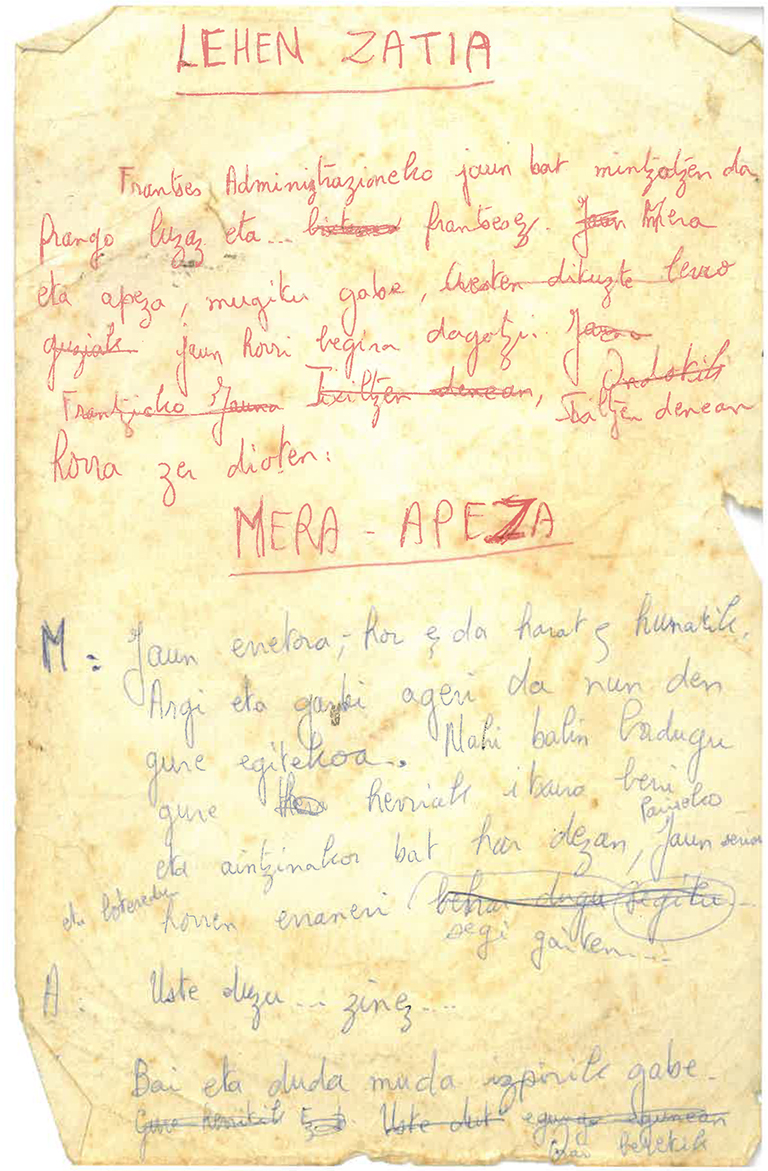 LEHEN ZATIA
Frantses Administrazioneko jaun bat mintzatzen da
frango luzaz eta... frantsesez. Jaun Mera
eta apeza, mugitu gabe, ikusten dituzte lerro
guziak jaun horri begira dagotzi. Jauna
Frantziako Jauna Ixiltzen denean, Ondotik
Ixiltzen denean
horra zer dioten:
MERA - APEZA
M : Jaun erretora, hor ez da harat ez hunatik.
Argi eta garbi ageri da nun den
gure egitekoa. Nahi balin badugu
gure herriak itxura berri
Pariseko
eta aintzinakor bat har dezan, Jaun
horren erraneri behar dugu segitu...
segi gaiten....
A : Uste duzu... zinez...
Bai eta duda muda izpirik gabe.
Gure herritik Uste dut egungo egunean